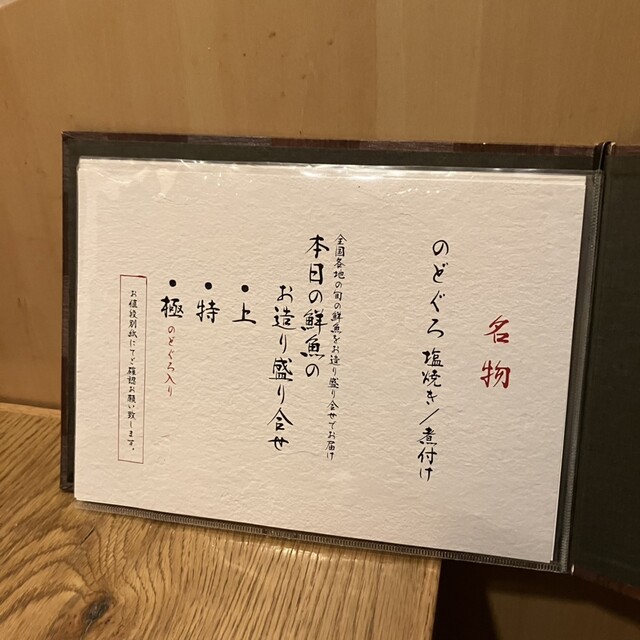 名物
のどぐろ 塩焼き/煮付け
全国各地の旬の鮮魚をお造り盛り合せでお届け
本日の鮮魚の
お造り盛り合せ
•上
•特
•極 のどぐろ入り
お値段別紙にてご確認お願い致します。